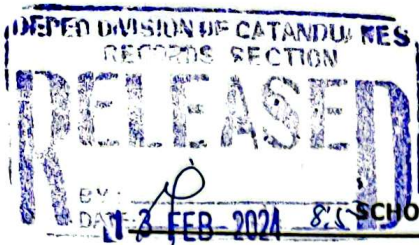 DEPED DIVISION OF CATANDUANES
RECORDS SECTION
RELEASED
BY:
DATE 13 FEB 2024 8:5 SCHO